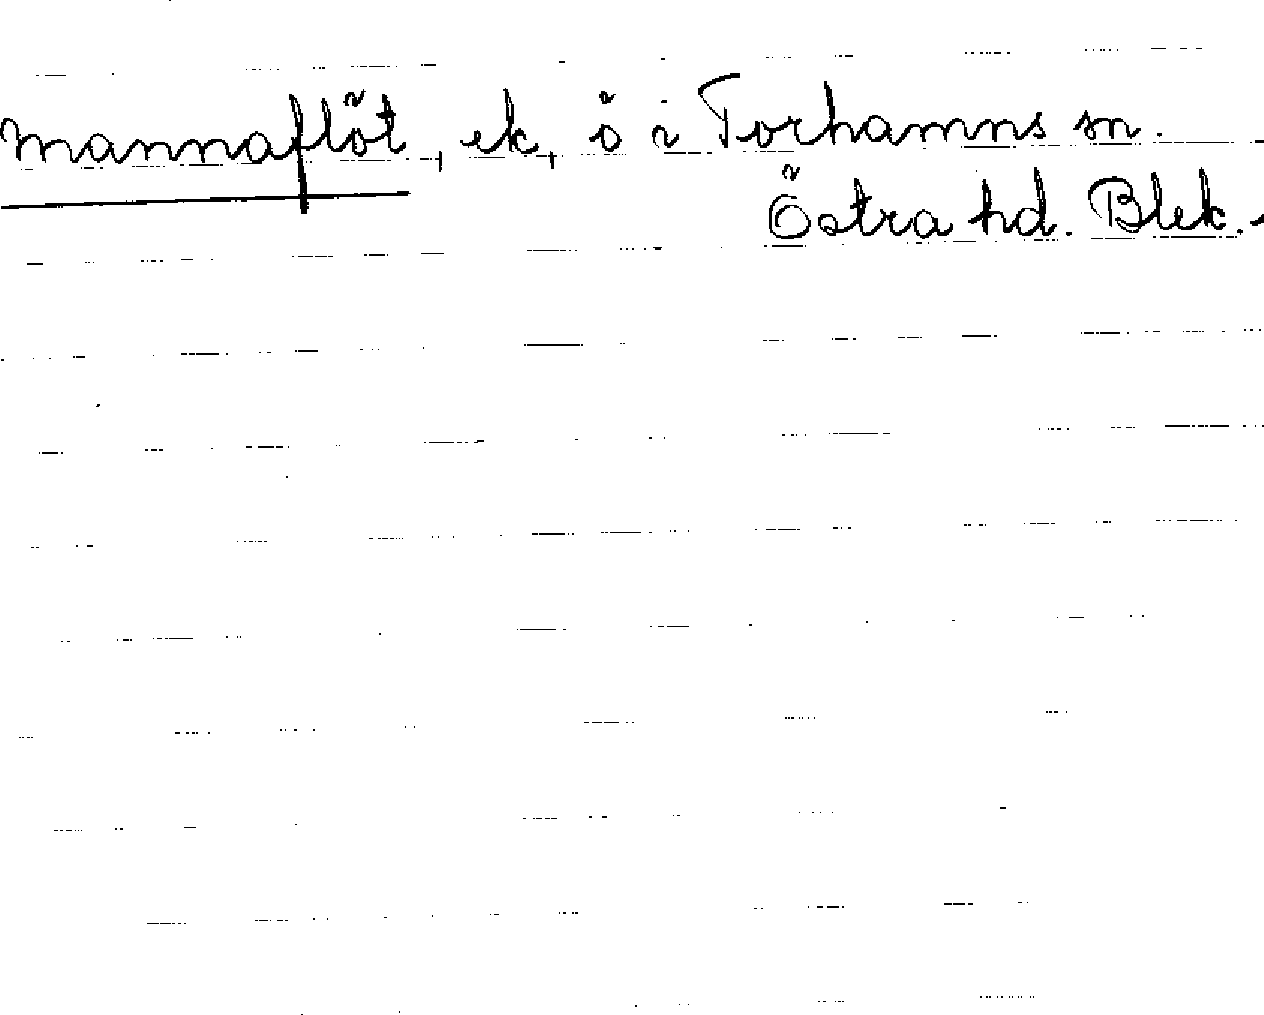 Mannaflöt, ek, ö i Torhamns sn.
Östra hd. Blek.-